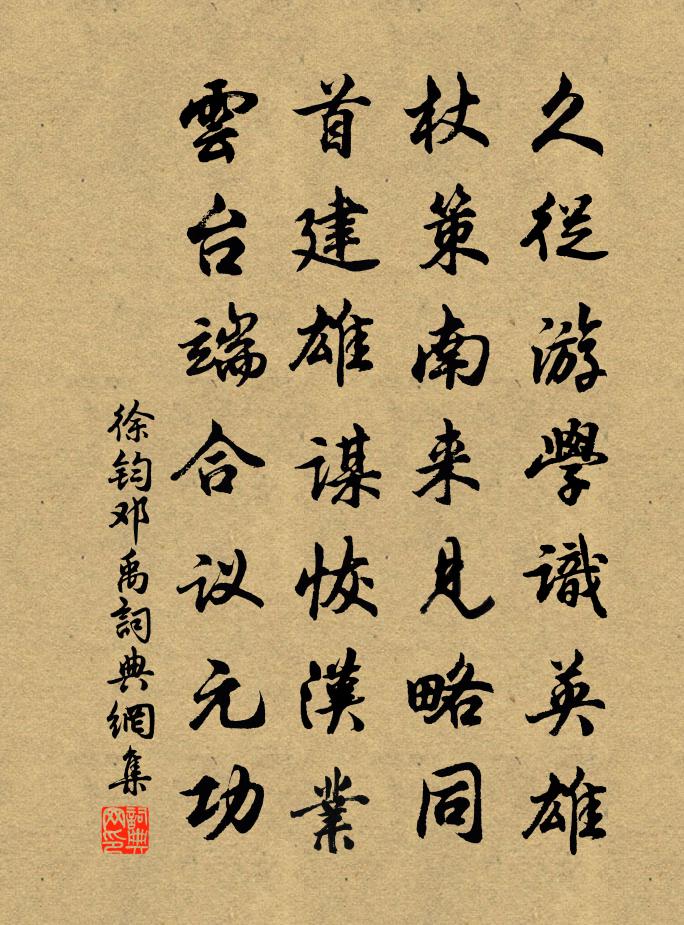 久從游學識英雄
杖策南来見略同
首建雄謀恢漢業
雲台端合议元功
徐钧邓禹詞典網集
詞典網印